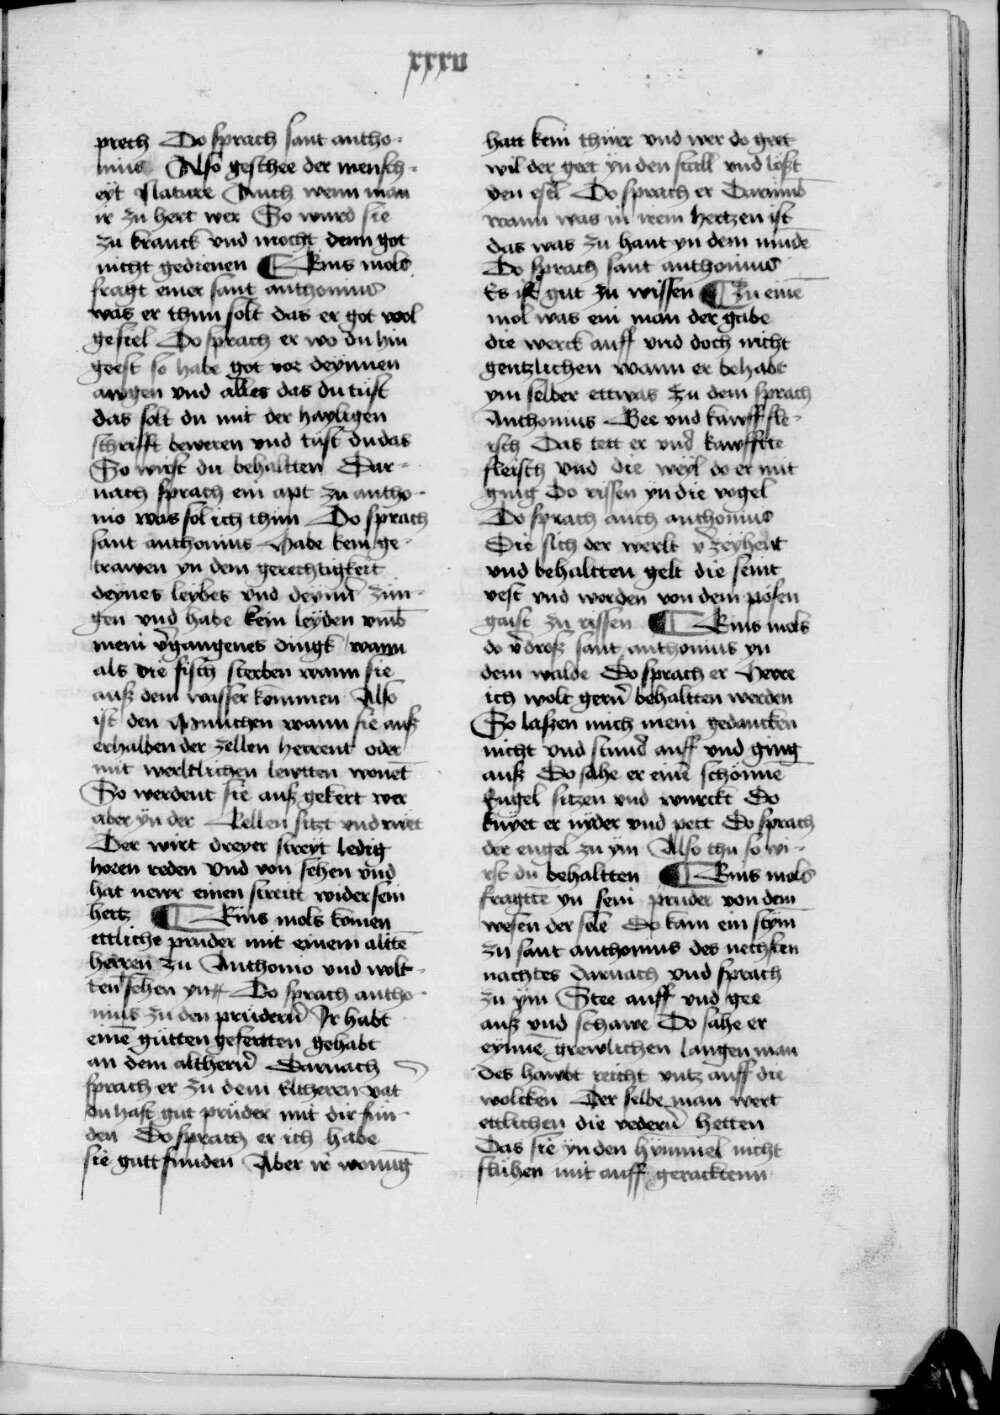 xxxv
prech Do sprach sant antho-
nius Also geschee der mensch-
eyt Nature Auch wenn man
ir zu hert wer So wurd sie
zu kranck vnd mocht denn got
nicht gedienen ¶ Eins mols
fragt einer sant anthonius
was er thun solt das er got wol
gefiel Do sprach er wo du hin
geest so habe got vor deynnen
awgen vnd alles das du tust
das solt du mit der hayligen
schrifft beweren vnd tust du das
So wirst du behaltten Dar-
nach sprach ein apt zu antho-
nio was sol ich thun Do sprach
sant anthonius Habe kein ge-
trawen yn dem gerechtigkeit
deynes leybes vnd deyner zun-
gen vnd habe kein leyden vmb
mein v̉gangenes dingk wann
als die fisch sterben wann sie
auß dem wasser kommen Also
ist den Munichen wann sie auß
erhalben der zellen herrent oder
mit werltlichen lewtten wonet
So werdent sie auß gekert wer
aber yn der Zellen sitzt vnd rwet
Der wirt dreyer streyt ledig
horen reden Vnd von sehen vnd
hat newr einen streitt wider sein
hertz ¶ Eins mols komen
ettliche pruder mit einem altte̅
herren zu Anthonio vnd wolt-
ten sehen yn Do sprach antho-
nius zu den prudern̉ Ir habt
eine̅ gutten geferten gehabt
an dem althern̉ Darnach
sprach er zu dem Eltheren vat
du hast gut pruder mit dir fun-
den Do sprach er ich habe
sie gutt funden Aber ir wonu̅g
hatt kein thurr vnd wer do geet
wil der geet yn den stall vnd lost
den esel Do sprach er Darumb
wann was in irem hertzen ist
das was zu hant yn dem munde
Do sprach sant anthonius
Es ist gut zu wissen ¶ Zu eine̅
mol was ein man der gabe
die werck auff vnd doch nicht
gentzlichen wann er behabt
ym selber ettwas Zu dem sprach
Anthonius Gee vnd kawff fle-
isch Das tett er vnd kawffte
fleisch vnd die weyl do er mit
ging Do rissen yn die vogel
Do sprach auch anthonius
Die sich der werlt v̉zeyhent
vnd behaltten gelt die seint
vest vnd werden von dem posen
gaist zu rissen ¶ Eins mols
do v̉droß sant anthonius yn
dem walde Do sprach er Herre
ich wolt gern̉ behaltten werden
So laßen mich mein gedancken
nicht vnd stund auff vnd ging
auß Do sahe er eine̅ schonne̅
Engel sitzen vnd wurckt Do
knyet er nyder vnd pett Do sprach
der engel zu ym Also thu so wi-
rst du behaltten ¶ Eins mols
fragtte̅ yn sein pruder von dem
wesen der sele Do kam ein stym
zu sant anthonius des nechsten
nachtes darnach vnd sprach
zu ym Stee auff vnd gee
auß vnd schawe Do sahe er
eynne̅ grewlichen langen man
des hawbt reicht vntz auff die
wolcken Der selbe man wert
ettlichen die vedern̉ hetten
Das sie yn den hymmel nicht
fluhen mit auff gerackttenn